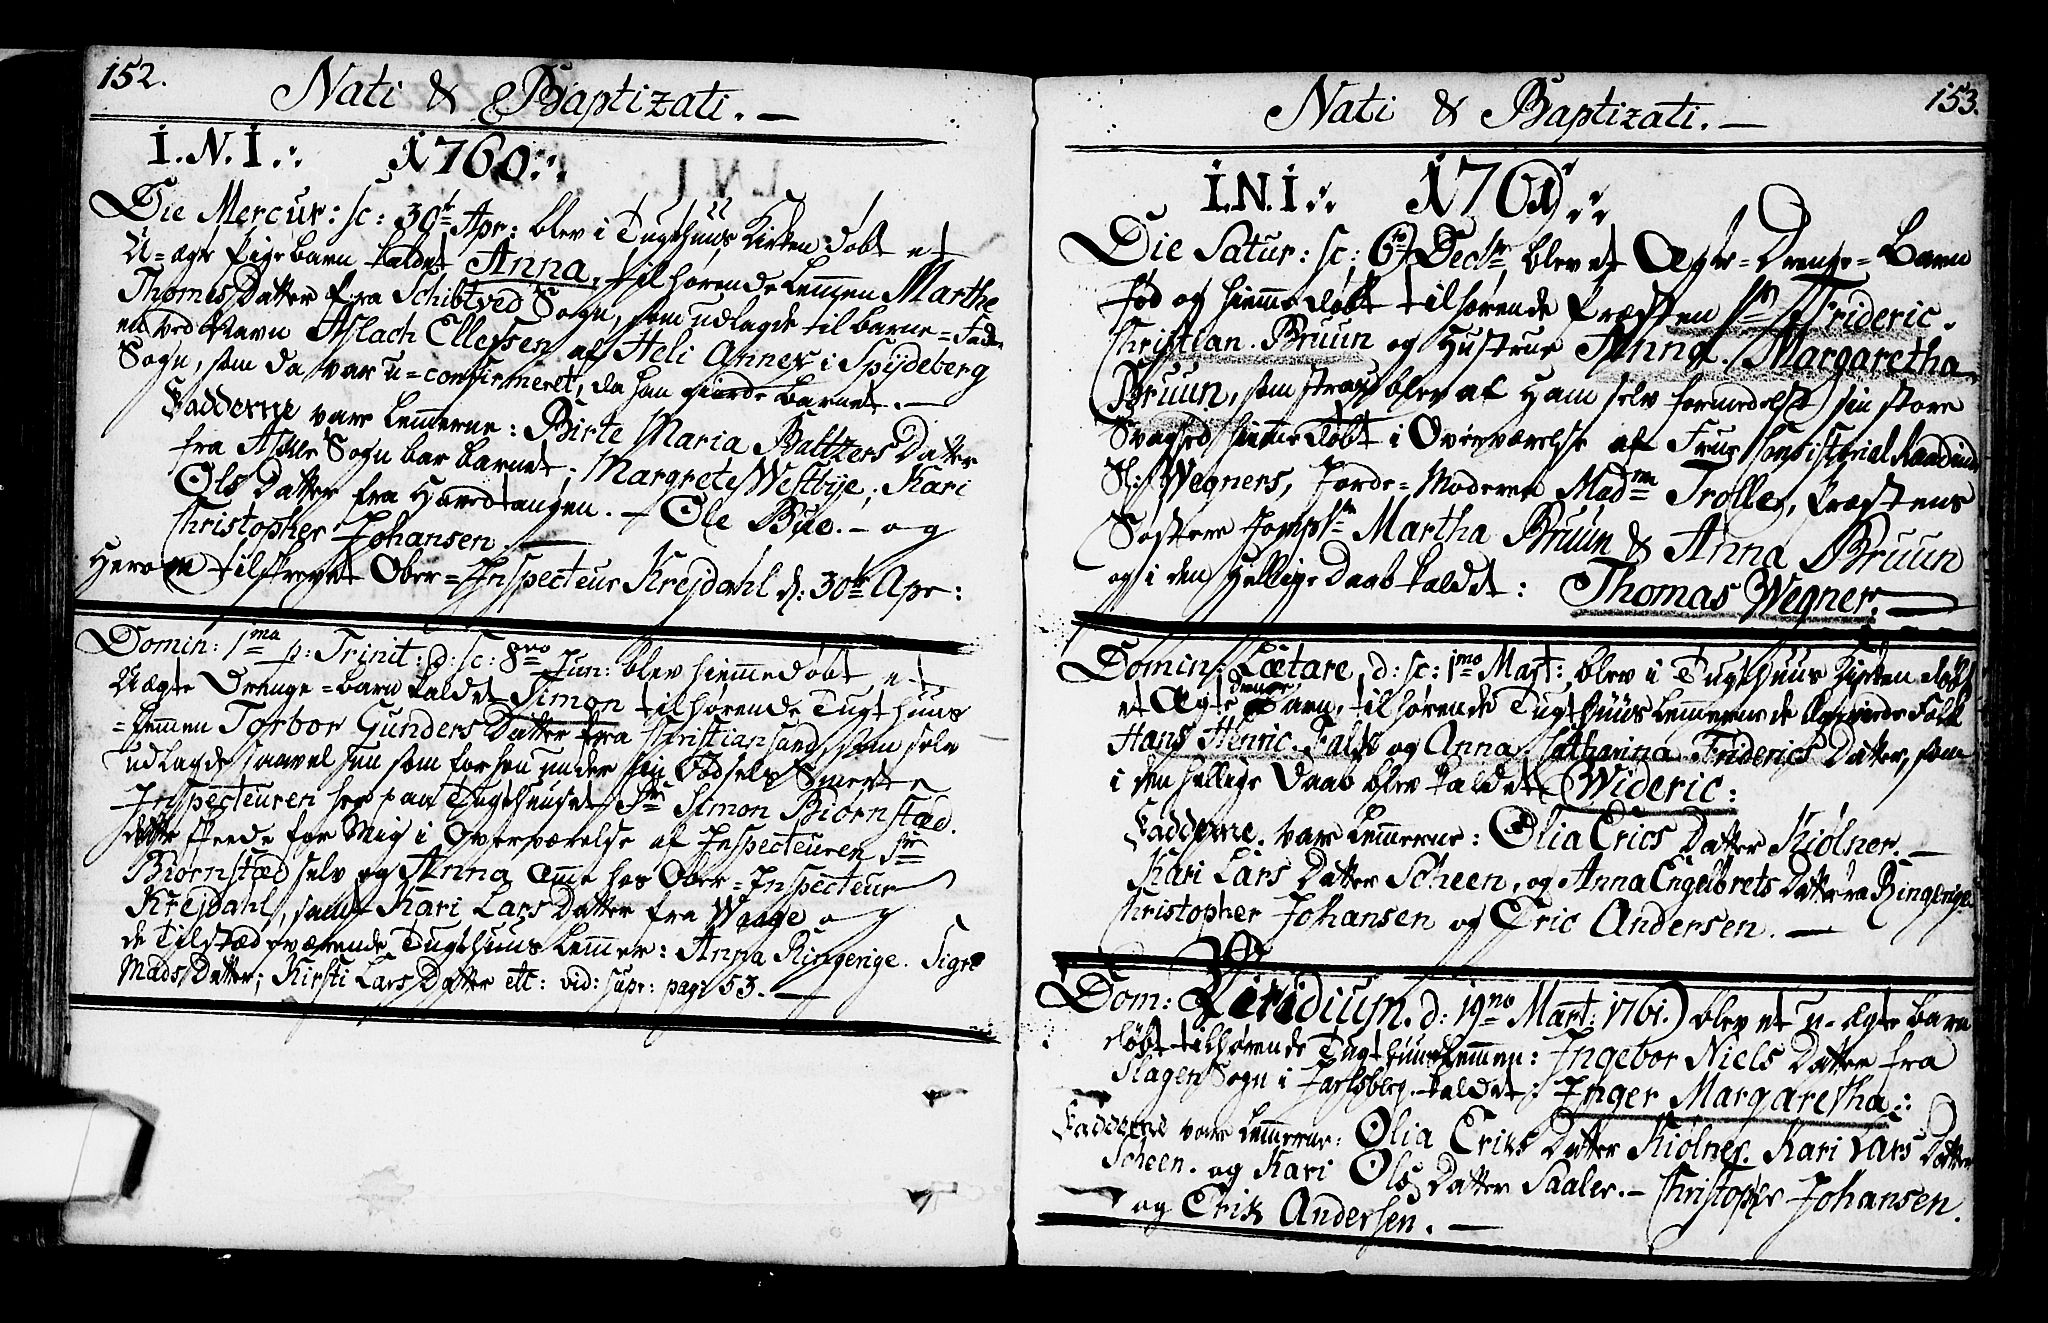 152.
Nati & Baptizati. —
I. N. I.:. 1760.:.
Die Mercur: sc: 30te Apr: blev i Tugthuus Kirken döbt et
U=ægte Pigebarn kaldet Anna, tilhörende Lemmen Marthe
Thomes Datter fra Schibtved Sogn, som udlagde til Barne=Fader
en ved Navn Aslach Ellefsen af Heli Annex i Spydeberg
Sogn, som da var u=confirmeret, da han giorde Barnet. —
Fadderne vare Lemmerne: Birte Maria Baltzers Datter
fra Sogn bar barnet; Margrete Westbye; Kari
Ols Datter fra Hardtangen. — Ole Bue. — og
Christopher Johansen —
Herom tilskrevet Ober=Inspecteur Krejdahl d: 30te Apr:
Domin: 1ma p: Trinit: d: sc: 8vo Jun: blev hiemmedöbt et
Uægte Drenge=barn kaldet Simon tilhörende Tugthuus
=Lemmen Torbor Gunders Datter fra Christiansand, som selv
udlagde saavel sen som for hen under sin Födsels Smerte
Inspecteuren her paa Tugthuuset Sr Simon Biornstæd.
Dette skeede for Mig i Overværelse af Inspecteuren Sr
Biornstæd selv og Anna Amme hos Ober=Inspecteur
Krejdahl, samt Kari Lars Datter fra Waage og
de Tilstædeværende Tugthuus Lemmer: Anna Ringerige. Sigri
Mads Datter; Kirsti Lars Datter etc: vid: supr: pag: 53. —
153.
Nati & Baptizati. —
I. N. I.:. 1761.:.
Die Satur: sc: 6te Decbr, blev et Ægte=Drenge=Barn
föd og hiemmedöbt tilhörende Præsten Hr Frideric
Christian Bruun og Hustrue Anna Margaretha
Bruun, som strax blev af Ham selv formedelst sin store
Svaghed hiemmedöbt i Overværelse af Frue Consistorial Raadinde
Sl: Wegners, Jorde=Moderen Madme Trolle, Præstens
Söstere Jomfr Martha Bruun & Anna Bruun
og i den Hellige Daab kaldet: Thomas Wegner. —
Domin: Lætare, d: sc: 1mo Mart:, blev i Tugthuus Kirken döbt
et Ægte Drenge Barn, tilhörende Tugthuus Lemmerne de Ægteviede Folk
Hans Henric Falk og Anna Catharina Friderics Datter, som
i den hellige Daab blev kaldet Wideric:
Fadderne vare Lemmerne: Olia Erics Datter Kiölner. —
Kari Lars Datter Scheen, og Anna Engelbrets Datter fra Ringerige.
Christopher Johansen og Eric Andersen. —
Dom: Viridium. d: 19no Mart: 1761.) blev et u=ægte barn
döbt tilhörende Tugthuus Lemmen: Ingebor Niels Datter fra
Slagen Sogn i Jarlsberg. kaldet: Inger Margaretha.:
Fadderne vare Lemmerne: Olia Eriks Datter Kiölner. Kari Lars Datter
Scheen. og Kari Ols Datter Saaler. — Christopher Johansen.
og Erik Andersen. —